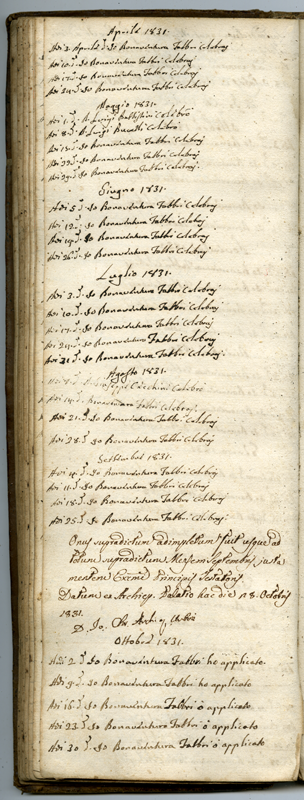 Aprile 1831.
Adi 2 Aprile d.o Io Bonaventura Fabbri Celebraj
Adi 10. d.o Io Bonaventura Fabbri Celebraj
Adi 17. d.o Io Bonaventura Fabbri Celebraj
Adi 24. d.o Io Bonaventura Fabbri Celebraj
Maggio 1831.
Adi 1. d.o Luigi Celebrò
Adi 8. d.o Luigi Celebrò
Adi 15. d.o Io Bonaventura Fabbri Celebraj
Adi 22. d.o Io Bonaventura Fabbri Celebraj
Adi 29. d.o Io Bonaventura Fabbri Celebraj
Giugno 1831.
Adi 5. d.o Io Bonaventura Fabbri Celebraj
Adi 12. d.o Io Bonaventura Fabbri Celebraj
Adi 19. d.o Io Bonaventura Fabbri Celebraj
Adi 26. d.o Io Bonaventura Fabbri Celebraj
Luglio 1831.
Adi 3. d.o Io Bonaventura Fabbri Celebraj
Adi 10. d.o Io Bonaventura Fabbri Celebraj
Adi 17. d.o Io Bonaventura Fabbri Celebraj
Adi 24. d.o Io Bonaventura Fabbri Celebraj
Adi 31. d.o Io Bonaventura Fabbri Celebraj
Agosto 1831.
Celebrò
Adi 14. Bonaventura Fabbri Celebraj
Adi 21. d.o Io Bonaventura Fabbri Celebraj
Adi 28. d.o Io Bonaventura Fabbri Celebraj
Settembre 1831.
Adi 4. d.o Io Bonaventura Fabbri Celebraj
Adi 11. d.o Io Bonaventura Fabbri Celebraj
Adi 18. d.o Io Bonaventura Fabbri Celebraj
Adi 25. d.o Io Bonaventura Fabbri Celebraj
Onus supradictum adimpletum fuit usque ad
totum supradictum Mensem Septembris juxta
mentem Principis Testatoris
Datum ex Archiep. Palatio hac die 8. Octobris
1831.
D. Jo.
Ottobre 1831.
Adi 2. d.o Io Bonaventura Fabbri ho applicato.
Adi 9. d.o Io Bonaventura Fabbri ho applicato
Adi 16. d.o Io Bonaventura Fabbri ò applicato
Adi 23. d.o Io Bonaventura Fabbri ò applicato
Adi 30. d.o Io Bonaventura Fabbri ò applicato